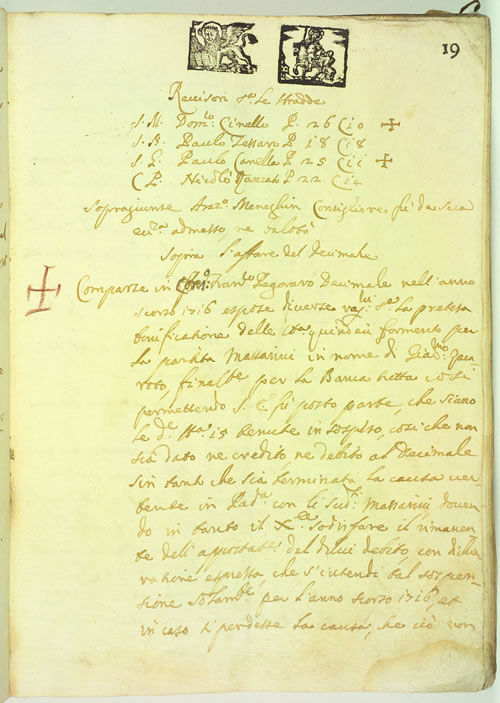 19
Revisori s.ª le Stradde
S. M. Dom.co Cinello P. 26 C 10
S. A. Paulo Zessaro P. 18 C 18
S. L. Paulo Canella P. 25 C 11
C. P. Nicolò P. 22 C 14
Sopragiunse Anz.º Meneghin Consigliere, fù da sua
admesso, ne balotò
Sopra l'affare del Decimale
Comparse in Cons.º Fran.co Pegoraro Decimale nell'anno
scorso 1716 espose diverse rag.ni s.ª la pretesa
bonificatione delle quindeci formento per
la partita Massarini in nome di
finalte per la Banca detta così
permettendo S. E. fù posto parte, che siano
le d.e 15 tenute in sospeso, così che non
sia dato ne credito ne debito al Decimale
sin tanto che sia terminata la causa ver-
tente in Pad.ª con li sud.i Massarini doven-
do in tanto il sodisfare il rimanen-
te dell' del di lui debito, con dichia-
ratione espressa, che s'intendi tal sospen-
sione solam.te per l'anno scorso 1716, et
in caso si perdesse la causa, che ciò non